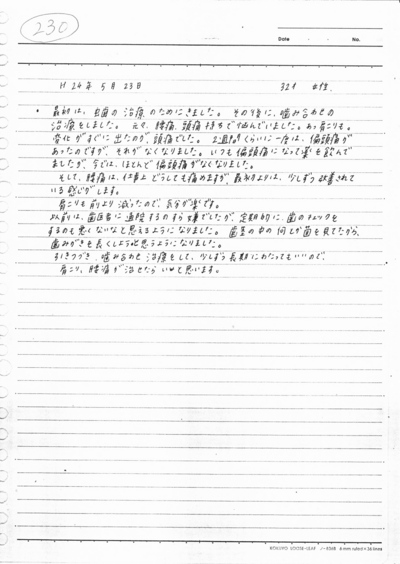 230
Date ・ ・ No.
H 24年 5月 23日 32才 女性
・ 最初は、虫歯の治療のためにきました。その後に、噛み合わせの
治療をしました。元々、腰痛、頭痛持ちで悩んでいました。あっ肩こりも。
変化がすぐに出たのが、頭痛でした。2週間くらいに一度は、偏頭痛が
あったのですが、それがなくなりました。いつも偏頭痛になって薬を飲んで
ましたが、今では、ほとんど偏頭痛がなくなりました。
そして、腰痛は、仕事上どうしても痛めますが、最初よりは、少しずつ改善されて
いる感じがします。
肩こりも前より減ったので、気分が楽です。
以前は、歯医者に通院するのすら嫌でしたが、定期的に、歯のチェックを
するのも悪くないなと思えるようになりました。歯茎の中の何とか菌を見てたから、
歯みがきも長くしようと思うようになりました。
引きつづき、噛み合わせ治療をして、少しずつ長期にわたってもいいので、
肩こり、腰痛が治せたらいいと思います。
KOKUYO LOOSE-LEAF 6 mm ruled × 36 lines